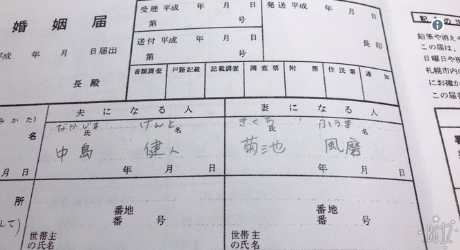 婚姻届
受理 平成 年 月 日
発送 平成 年 月 日
第 号
平成 年 月 日届出
送付 平成 年 月 日
長印
第 号
長 殿
書類調査 戸籍記載 記載調査 調査票 附票 住民票 通知
夫になる人 妻になる人
みかた) なかじま けんと きくち ふうま
氏 名 氏 名
名 中島 健人 菊池 風磨
年 月 日 年 月 日
所 番地 番地
番 号 番 号
して)
世帯主 世帯主
の氏名 の氏名
鉛筆や消え
この届は、
日曜日や祝
札幌市内の
にお確か
この届
BeautyPlus